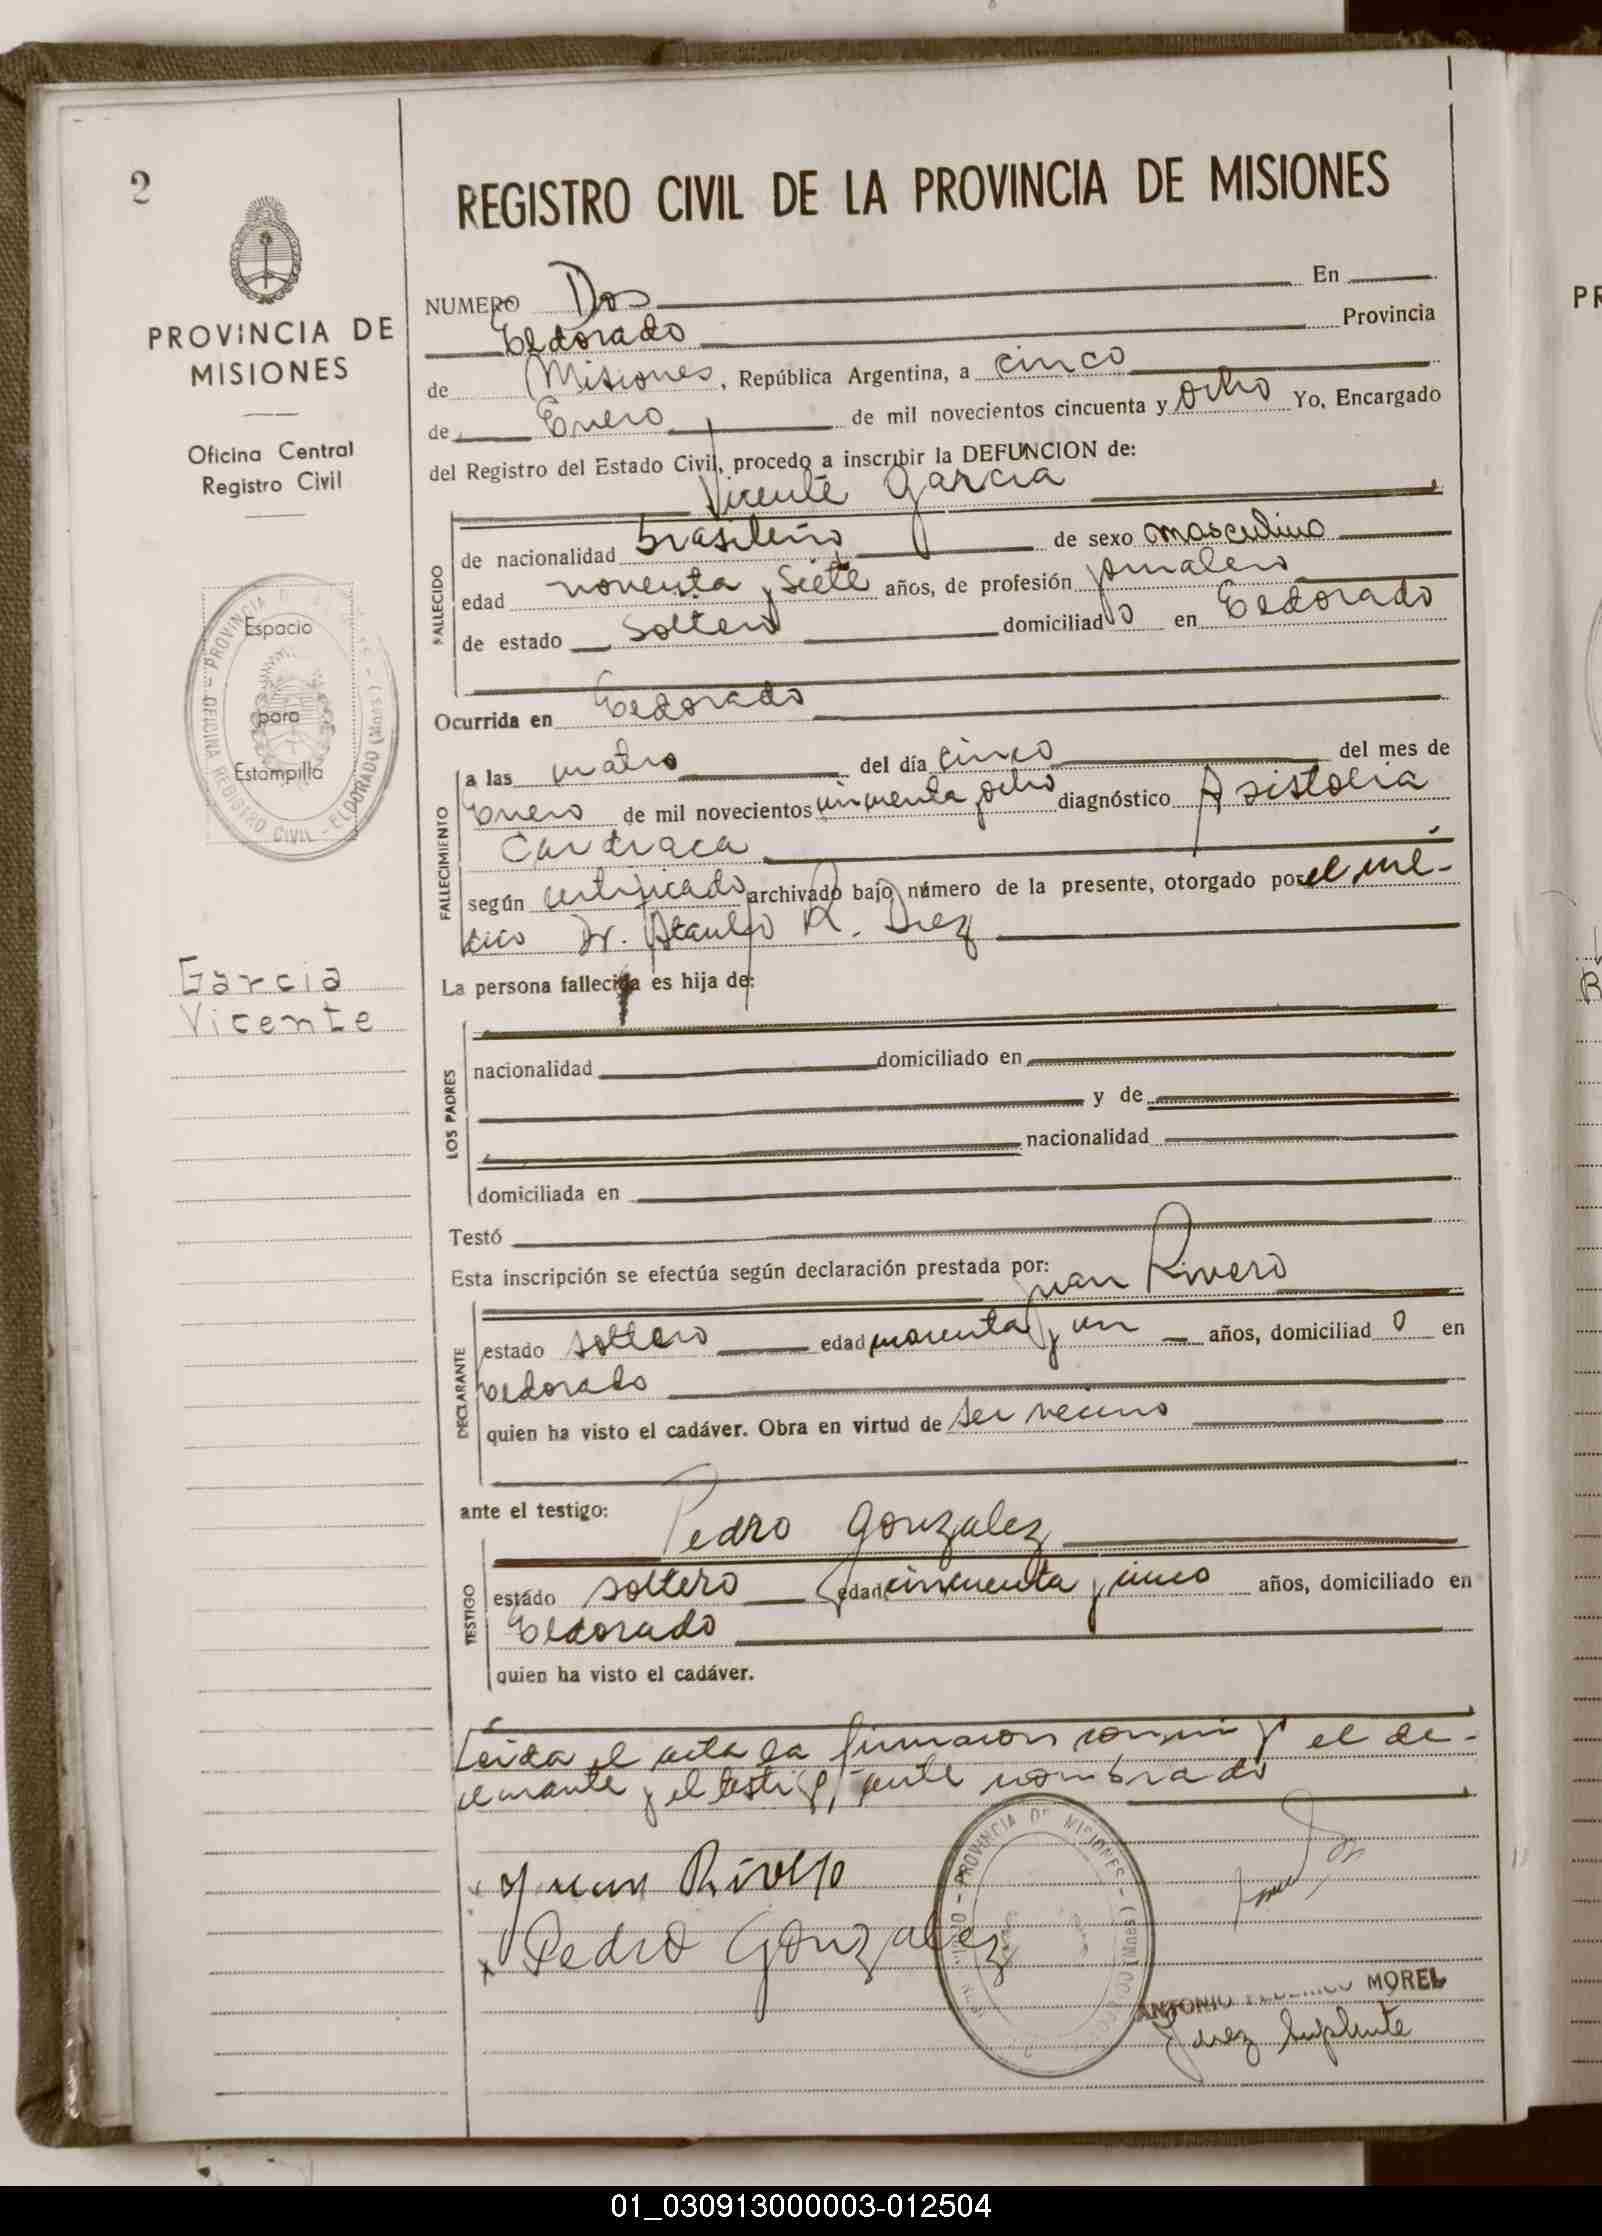 2
PROVINCIA DE
MISIONES
Oficina Central
Registro Civil
Espacio
para
Estampilla
OFICINA REGISTRO CIVIL - ELDORADO (Mnes)
Garcia
Vicente
REGISTRO CIVIL DE LA PROVINCIA DE MISIONES
NUMERO Dos En
Eldorado Provincia
de Misiones, República Argentina, a cinco
de Enero de mil novecientos cincuenta y ocho Yo, Encargado
del Registro del Estado Civil, procedo a inscribir la DEFUNCION de:
Vicente Garcia
FALLECIDO
de nacionalidad brasileño de sexo masculino
edad noventa y siete años, de profesión jornalero
de estado soltero domiciliado en Eldorado
Ocurrida en Eldorado
FALLECIMIENTO
a las cuatro del día cinco del mes de
Enero de mil novecientos cincuenta y ocho diagnóstico Asistolia
Cardiaca
según certificado archivado bajo número de la presente, otorgado por el mé-
dico Dr. Ataulfo R. Diez
La persona fallecida es hija de:
LOS PADRES
nacionalidad domiciliado en
y de
nacionalidad
domiciliada en
Testó
Esta inscripción se efectúa según declaración prestada por:
Juan Rivero
DECLARANTE
estado soltero edad cuarenta y un años, domiciliado en
Eldorado
quien ha visto el cadáver. Obra en virtud de ser vecino
ante el testigo:
Pedro Gonzalez
TESTIGO
estado soltero edad cincuenta y cinco años, domiciliado en
Eldorado
quien ha visto el cadáver.
Leida el acta la firmaron conmigo el de-
clarante y el testigo ante nombrado
Juan Rivero
x Pedro Gonzalez
PROVINCIA DE MISIONES
ANTONIO FEDERICO MOREL
Juez Suplente
01_030913000003-012504